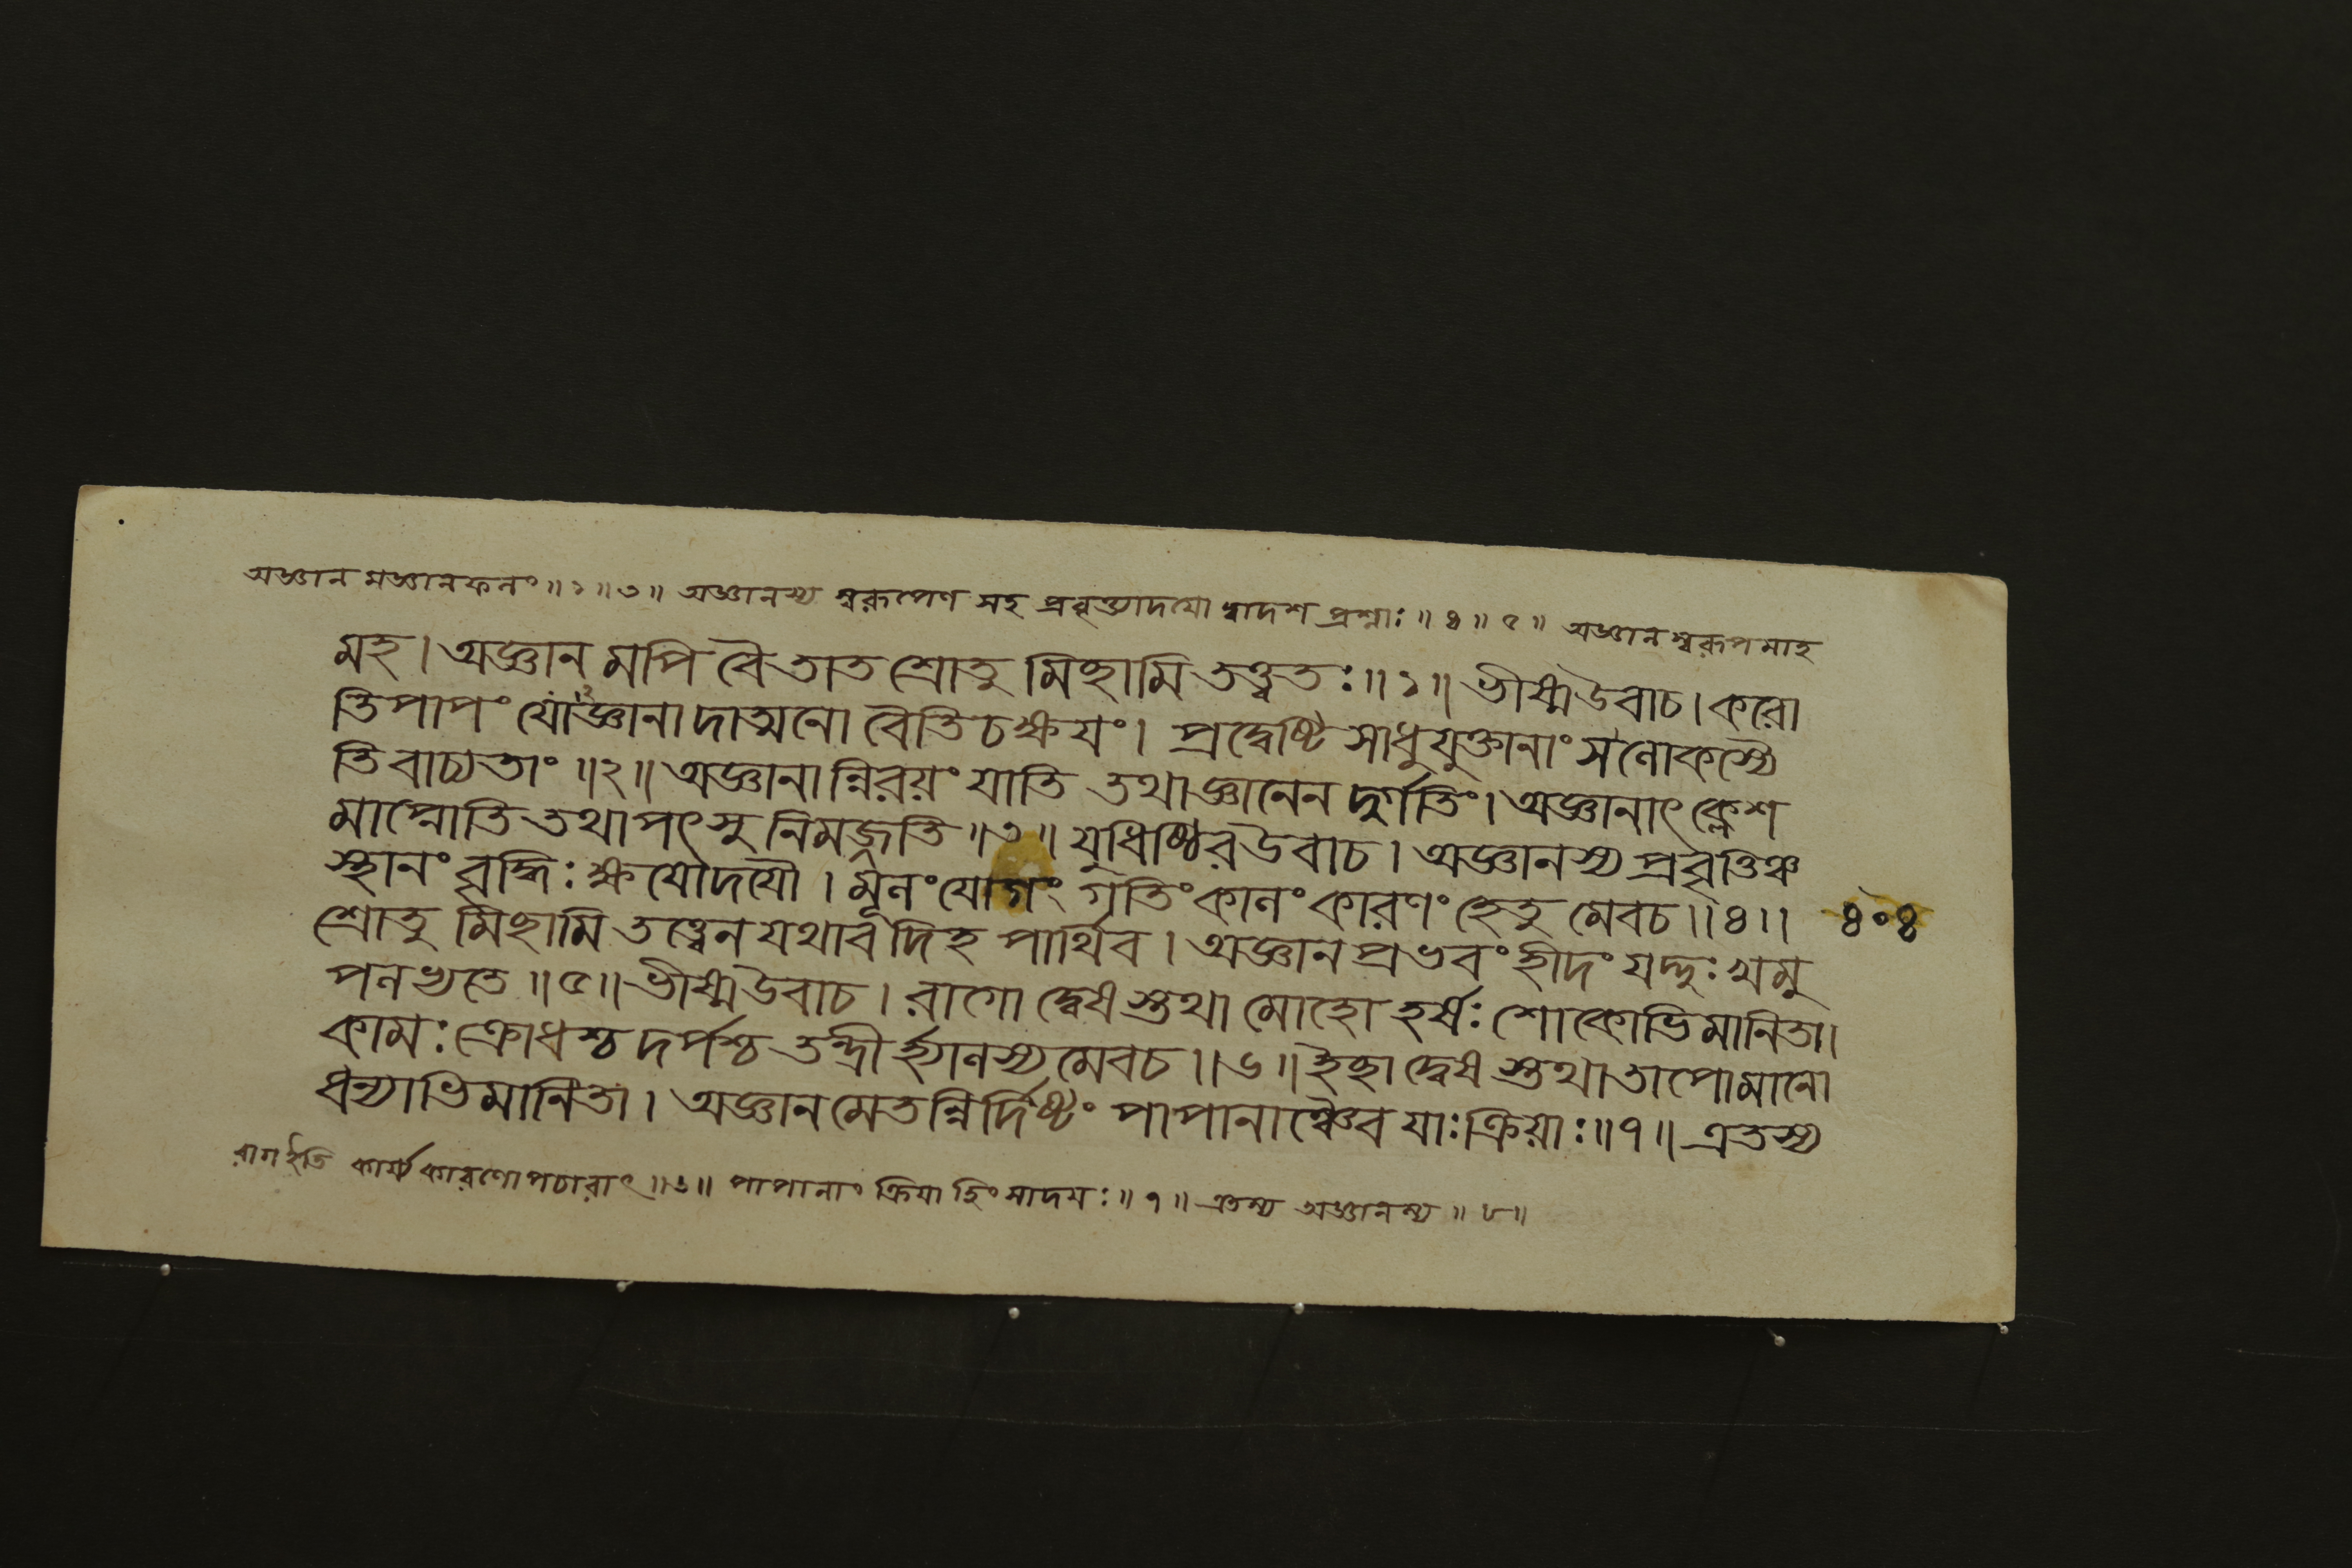 অজ্ঞান মজ্ঞানফলং ॥ ১ ॥ ৩ ॥ অজ্ঞানস্য স্বরূপেণ সহ প্রবৃত্ত্যাদযো দ্বাদশ প্রশ্নাঃ ॥ ৪ ॥ ৫ ॥ অজ্ঞান স্বরূপ মাহ
মহ । অজ্ঞান মপি বৈ তাত শ্রোতু মিছামি তত্ত্বতঃ ॥ ১ ॥ ভীষ্মউবাচ । করো
তি পাপং যোঽজ্ঞানা দাত্মনো বেত্তি চ ক্ষযং । প্রদ্বেষ্টি সাধুযুক্তানাং স লোকস্যৈ
তি বাচ্যতাং ॥ ২ ॥ অজ্ঞানা ন্নিরয়ং যাতি তথাজ্ঞানেন দুর্গতিং । অজ্ঞানাৎ ক্লেশ
মাপ্নোতি তথাপৎসু নিমজ্জতি ॥ ৩ ॥ যুধিষ্ঠিরউবাচ । অজ্ঞানস্য প্রবৃত্তিঞ্চ
স্থানং বৃদ্ধিঃ ক্ষযোদযৌ । মূলং যোগং গতিং কালং কারণং হেতু মেবচ ॥ ৪ ॥ ৪০৪
শ্রোতু মিছামি তত্ত্বেন যথাব দিহ পার্থিব । অজ্ঞান প্রভবং হীদং যদ্দুঃখমু
পলভ্যতে ॥ ৫ ॥ ভীষ্মউবাচ । রাগো দ্বেষ স্তথা মোহো হর্ষঃ শোকোভিমানিতা ।
কামঃ ক্রোধশ্চ দর্পশ্চ তন্দ্রীর্হ্যালস্য মেবচ ॥ ৬ ॥ ইছা দ্বেষ স্তথা তাপো মানো
ধন্যাভিমানিতা । অজ্ঞান মেতন্নির্দিষ্টং পাপানাঞ্চৈব যাঃ ক্রিয়াঃ ॥ ৭ ॥ এতস্য
রাগ ইতি কার্য্যে কারণোপচারাৎ ॥ ৬ ॥ পাপানাং ক্রিযা হিংসাদযঃ ॥ ৭ ॥ এতস্য অজ্ঞানস্য ॥ ৮ ॥